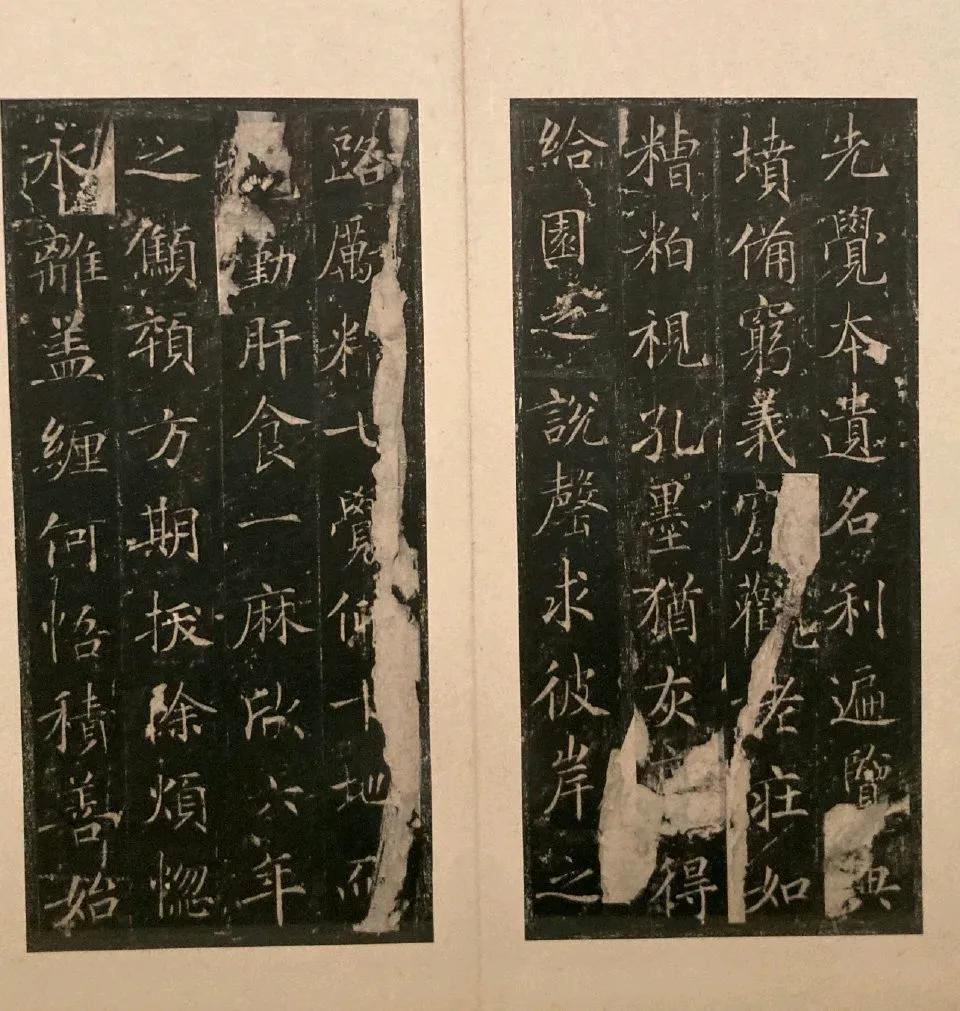 先覺本遺名利遍覽典
墳備窮義窟觀老莊如
糟粕視孔墨猶灰得
給園之說罄求彼岸之
路厲精七覺仰十地而
勤肝食一麻欣六年
之顦顇方期拔除煩惚
永離盖纏何悟積善始